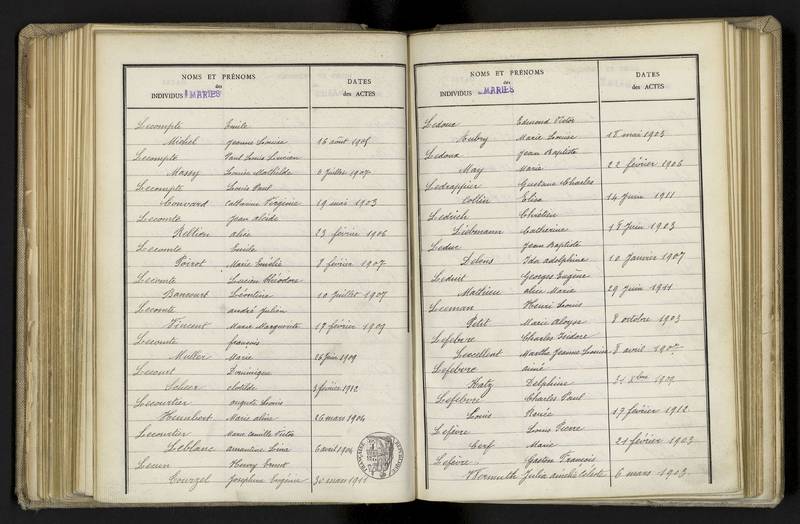 NOMS ET PRÉNOMS
des
INDIVIDUS MARIÉS
DATES
des ACTES
Lecompte Emile
Michel Jeanne Louise 16 août 1905
Lecompte Paul Louis Lucien
Massy Louise Mathilde 6 Juillet 1907
Lecompte Louis Paul
Convard Catherine Virginie 19 mai 1903
Lecomte Jean Alcide
Rellion Alice 23 février 1906
Lecomte Emile
Poirot Marie Emélie 8 février 1907
Lecomte Lucien Théodore
Bancourt Léontine 10 Juillet 1907
Lecomte André Julien
Vincent Marie Marguerite 17 février 1909
Lecomte François
Muller Marie 26 Juin 1909
Lecourt Dominique
Scheer Clotilde 3 février 1912
Lecourtier Auguste Louis
Humbert Marie Aline 26 mars 1904
Lecourtier Marie Camille Victor
Leblanc Amandine 6 avril 1904
Lecuu Henry Ernest
Courzel Joséphine Eugénie 30 mars 1911
NOMS ET PRÉNOMS
des
INDIVIDUS MARIÉS
DATES
des ACTES
Ledoux Edmond Victor
Aubry Marie Louise 18 mai 1903
Ledoux Jean Baptiste
May Marie 22 février 1906
Ledrappier Gustave Charles
Collin Elisa 14 Juin 1911
Ledrich Chrétien
Liebmann Catherine 18 Juin 1903
Leduc Jean Baptiste
Lelens Ida Adolphine 10 Janvier 1907
Leduit Georges Eugène
Mathieu Alice Marie 29 Juin 1911
Leeman Henri Louis
Petit Marie Aloyse 8 octobre 1903
Lefebvre Charles Isidore
Lescellent Martha Jeanne Louise 8 avril 1907
Lefebvre Aimé
Katz Delphine 31 Xbre 1909
Lefebvre Charles Paul
Louis Renée 17 février 1912
Lefèvre Louis Pierre
Cerf Marie 21 février 1903
Lefèvre Gaston François
Wermuth Julia Amélie Céleste 6 mars 1903